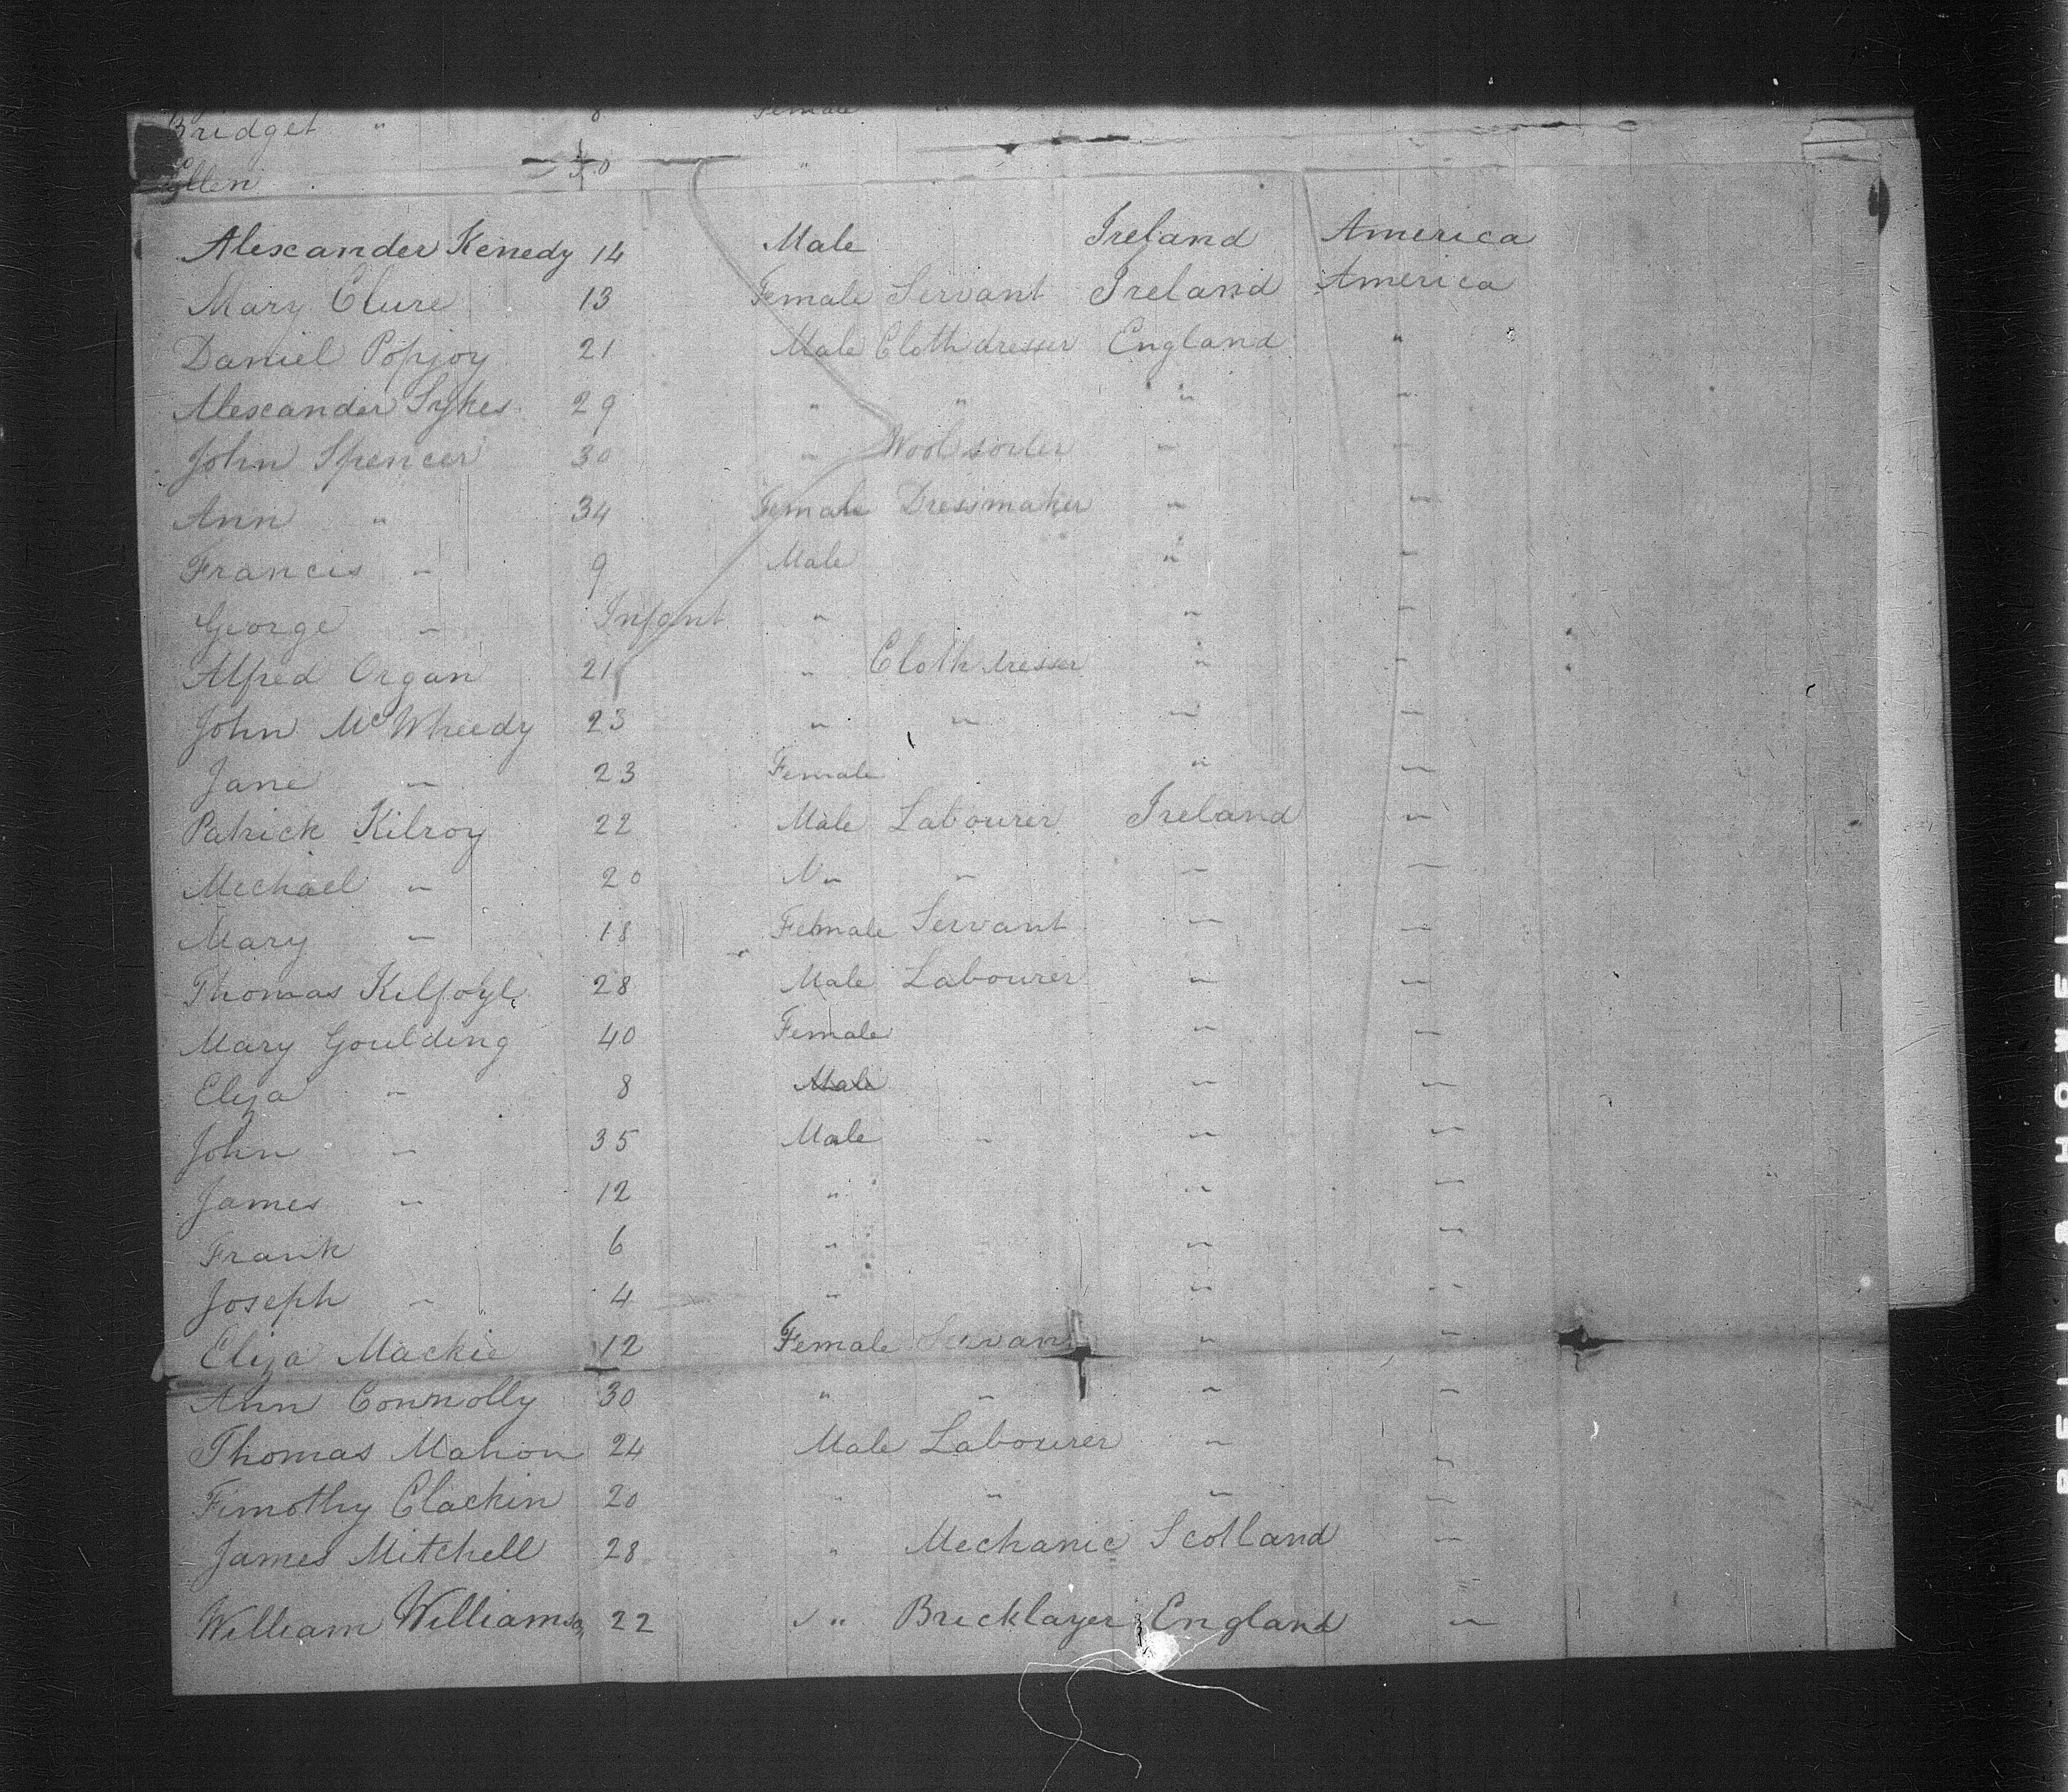 Bridget " 8 Female "
Ellen 30 "
Alexander Kenedy 14 Male Ireland America
Mary Clure 13 Female Servant Ireland America
Daniel Popjoy 21 Male Clothdresser England "
Alexander Sykes 29 " " " "
John Spencer 30 " Woolsorter " "
Ann " 34 Female Dressmaker " "
Francis " 9 Male " "
George " Infant " " "
Alfred Organ 21 " Clothdresser " "
John McWheedy 23 " " " "
Jane " 23 Female " "
Patrick Kilroy 22 Male Labourer Ireland "
Michael " 20 " " " "
Mary " 18 Female Servant " "
Thomas Kilfoyle 28 Male Labourer " "
Mary Goulding 40 Female " "
Eliza " 8 Male " "
John " 35 Male " " "
James " 12 " " "
Frank 6 " " "
Joseph " 4 " " "
Eliza Mackie 12 Female Servant " "
Ann Connolly 30 " " " "
Thomas Mahon 24 Male Labourer " "
Timothy Clackin 20 " " " "
James Mitchell 28 " Mechanic Scotland "
William Williams 22 " Bricklayer England "
BELL & HOWELL